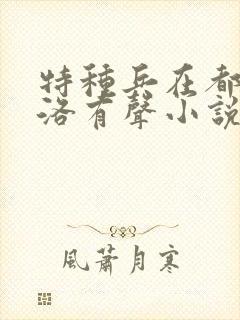 特種兵在都
洛有聲小說
風蕭月寒